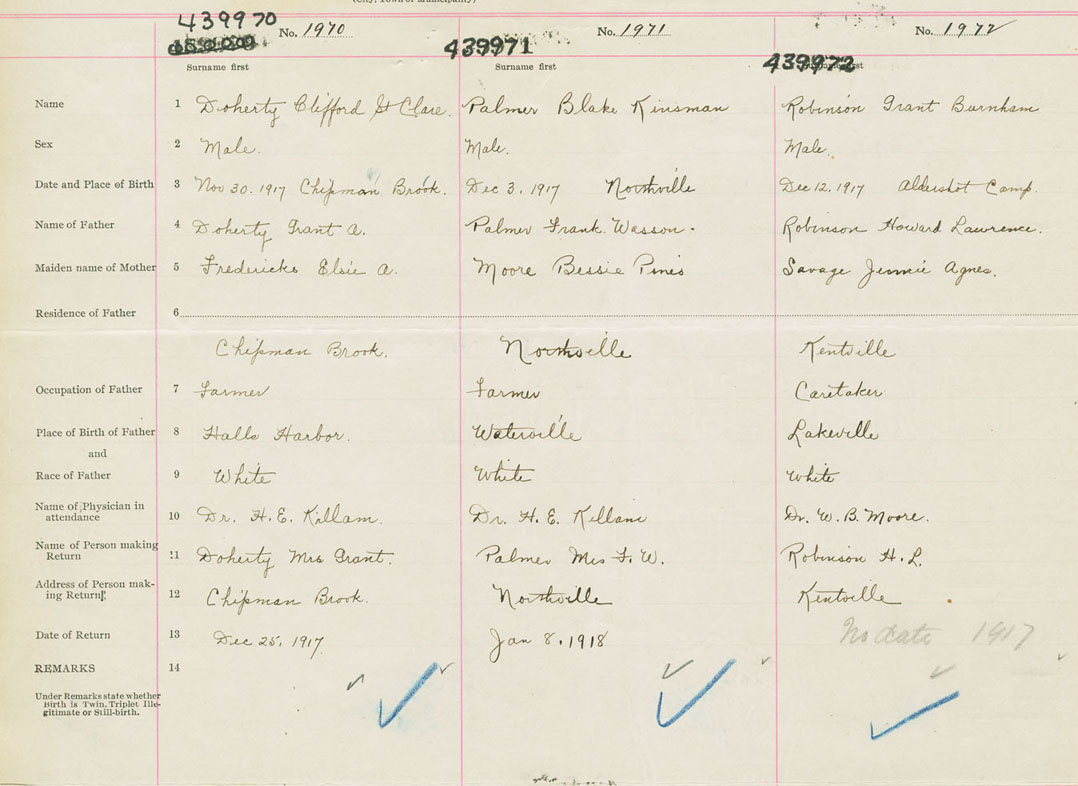 (City, Town or Municipality)
439970 No. 1970 439971 No. 1971 439972 No. 1972
Surname first Surname first
Name 1 Doherty Clifford St Clare. Palmer Blake Kinsman Robinson Grant Burnham
Sex 2 Male. Male. Male.
Date and Place of Birth 3 Nov 30. 1917 Chipman Brook. Dec 3, 1917 Northville Dec 12, 1917 Aldershot Camp.
Name of Father 4 Doherty Grant A. Palmer Frank. Wasson. Robinson Howard Lawrence.
Maiden name of Mother 5 Fredericks Elsie A. Moore Bessie Robinson Savage Jennie Agnes.
Residence of Father 6
Chipman Brook. Northville Kentville
Occupation of Father 7 Farmer Farmer Caretaker
Place of Birth of Father 8 Halls Harbor. Waterville Lakeville
and
Race of Father 9 White White White
Name of Physician in
attendance 10 Dr. H. E. Killam. Dr. H. E. Killam Dr. W. B. Moore.
Name of Person making
Return 11 Doherty Mrs Grant. Palmer Mrs F. W. Robinson H. L.
Address of Person mak-
ing Return 12 Chipman Brook. Northville Kentville
Date of Return 13 Dec 25, 1917 Jan 8. 1918 No date 1917
REMARKS 14
Under Remarks state whether
Birth is Twin, Triplet Ille-
gitimate or Still-birth.